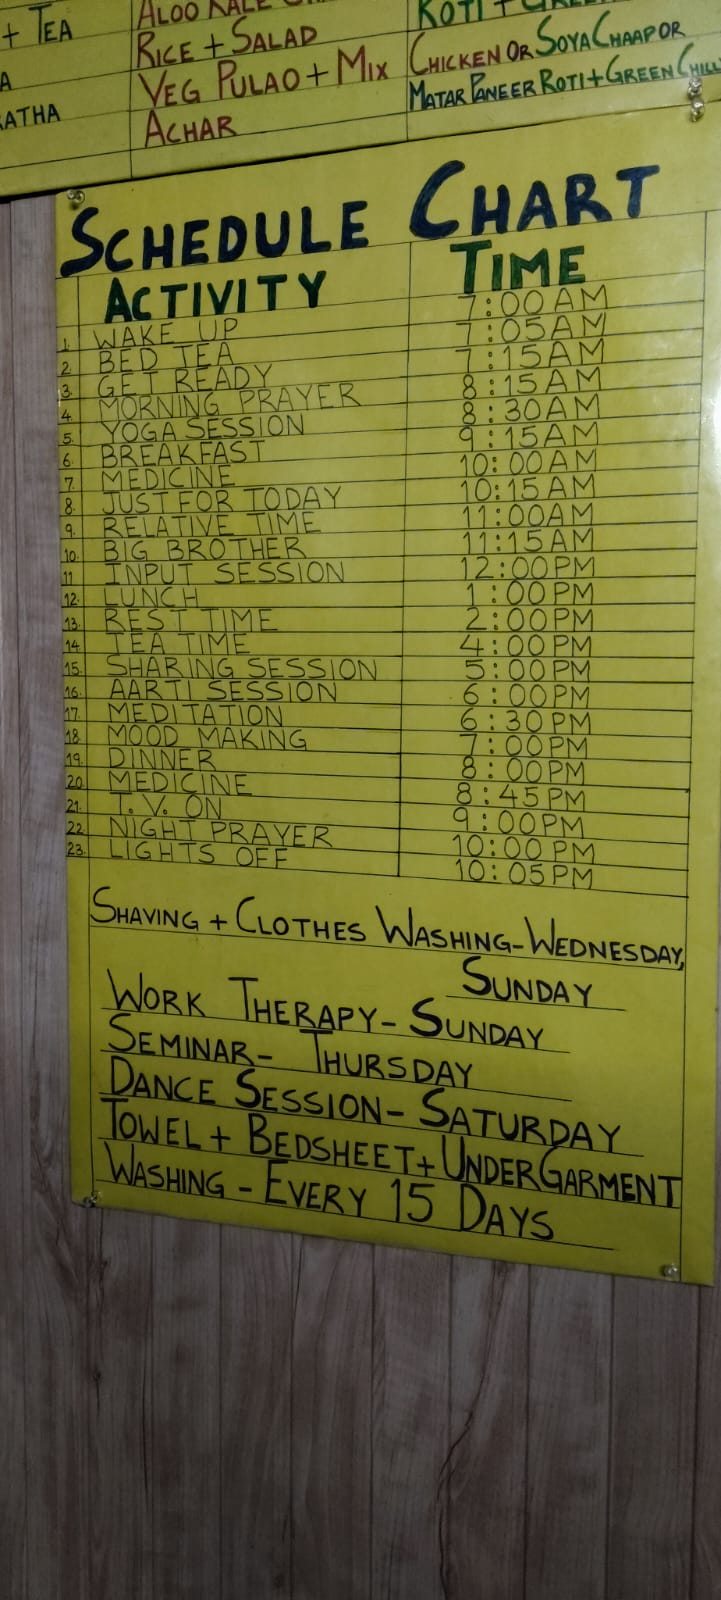 + TEA
ALOO KALE
RICE + SALAD
VEG PULAO + MIX
ACHAR
ROTI +
CHICKEN OR SOYA CHAAP OR
MATAR PANEER ROTI + GREEN CHILL
SCHEDULE CHART
ACTIVITY TIME
1. WAKE UP 7:00 AM
2. BED TEA 7:05 AM
3. GET READY 7:15 AM
4. MORNING PRAYER 8:15 AM
5. YOGA SESSION 8:30 AM
6. BREAKFAST 9:15 AM
7. MEDICINE 10:00 AM
8. JUST FOR TODAY 10:15 AM
9. RELATIVE TIME 11:00 AM
10. BIG BROTHER 11:15 AM
11 INPUT SESSION 12:00 PM
12. LUNCH 1:00 PM
13. REST TIME 2:00 PM
14 TEA TIME 4:00 PM
15. SHARING SESSION 5:00 PM
16. AARTI SESSION 6:00 PM
17. MEDITATION 6:30 PM
18 MOOD MAKING 7:00 PM
19. DINNER 8:00 PM
20. MEDICINE 8:45 PM
21. T.V. ON 9:00 PM
22. NIGHT PRAYER 10:00 PM
23. LIGHTS OFF 10:05 PM
SHAVING + CLOTHES WASHING - WEDNESDAY,
SUNDAY
WORK THERAPY - SUNDAY
SEMINAR - THURSDAY
DANCE SESSION - SATURDAY
TOWEL + BEDSHEET + UNDERGARMENT
WASHING - EVERY 15 DAYS